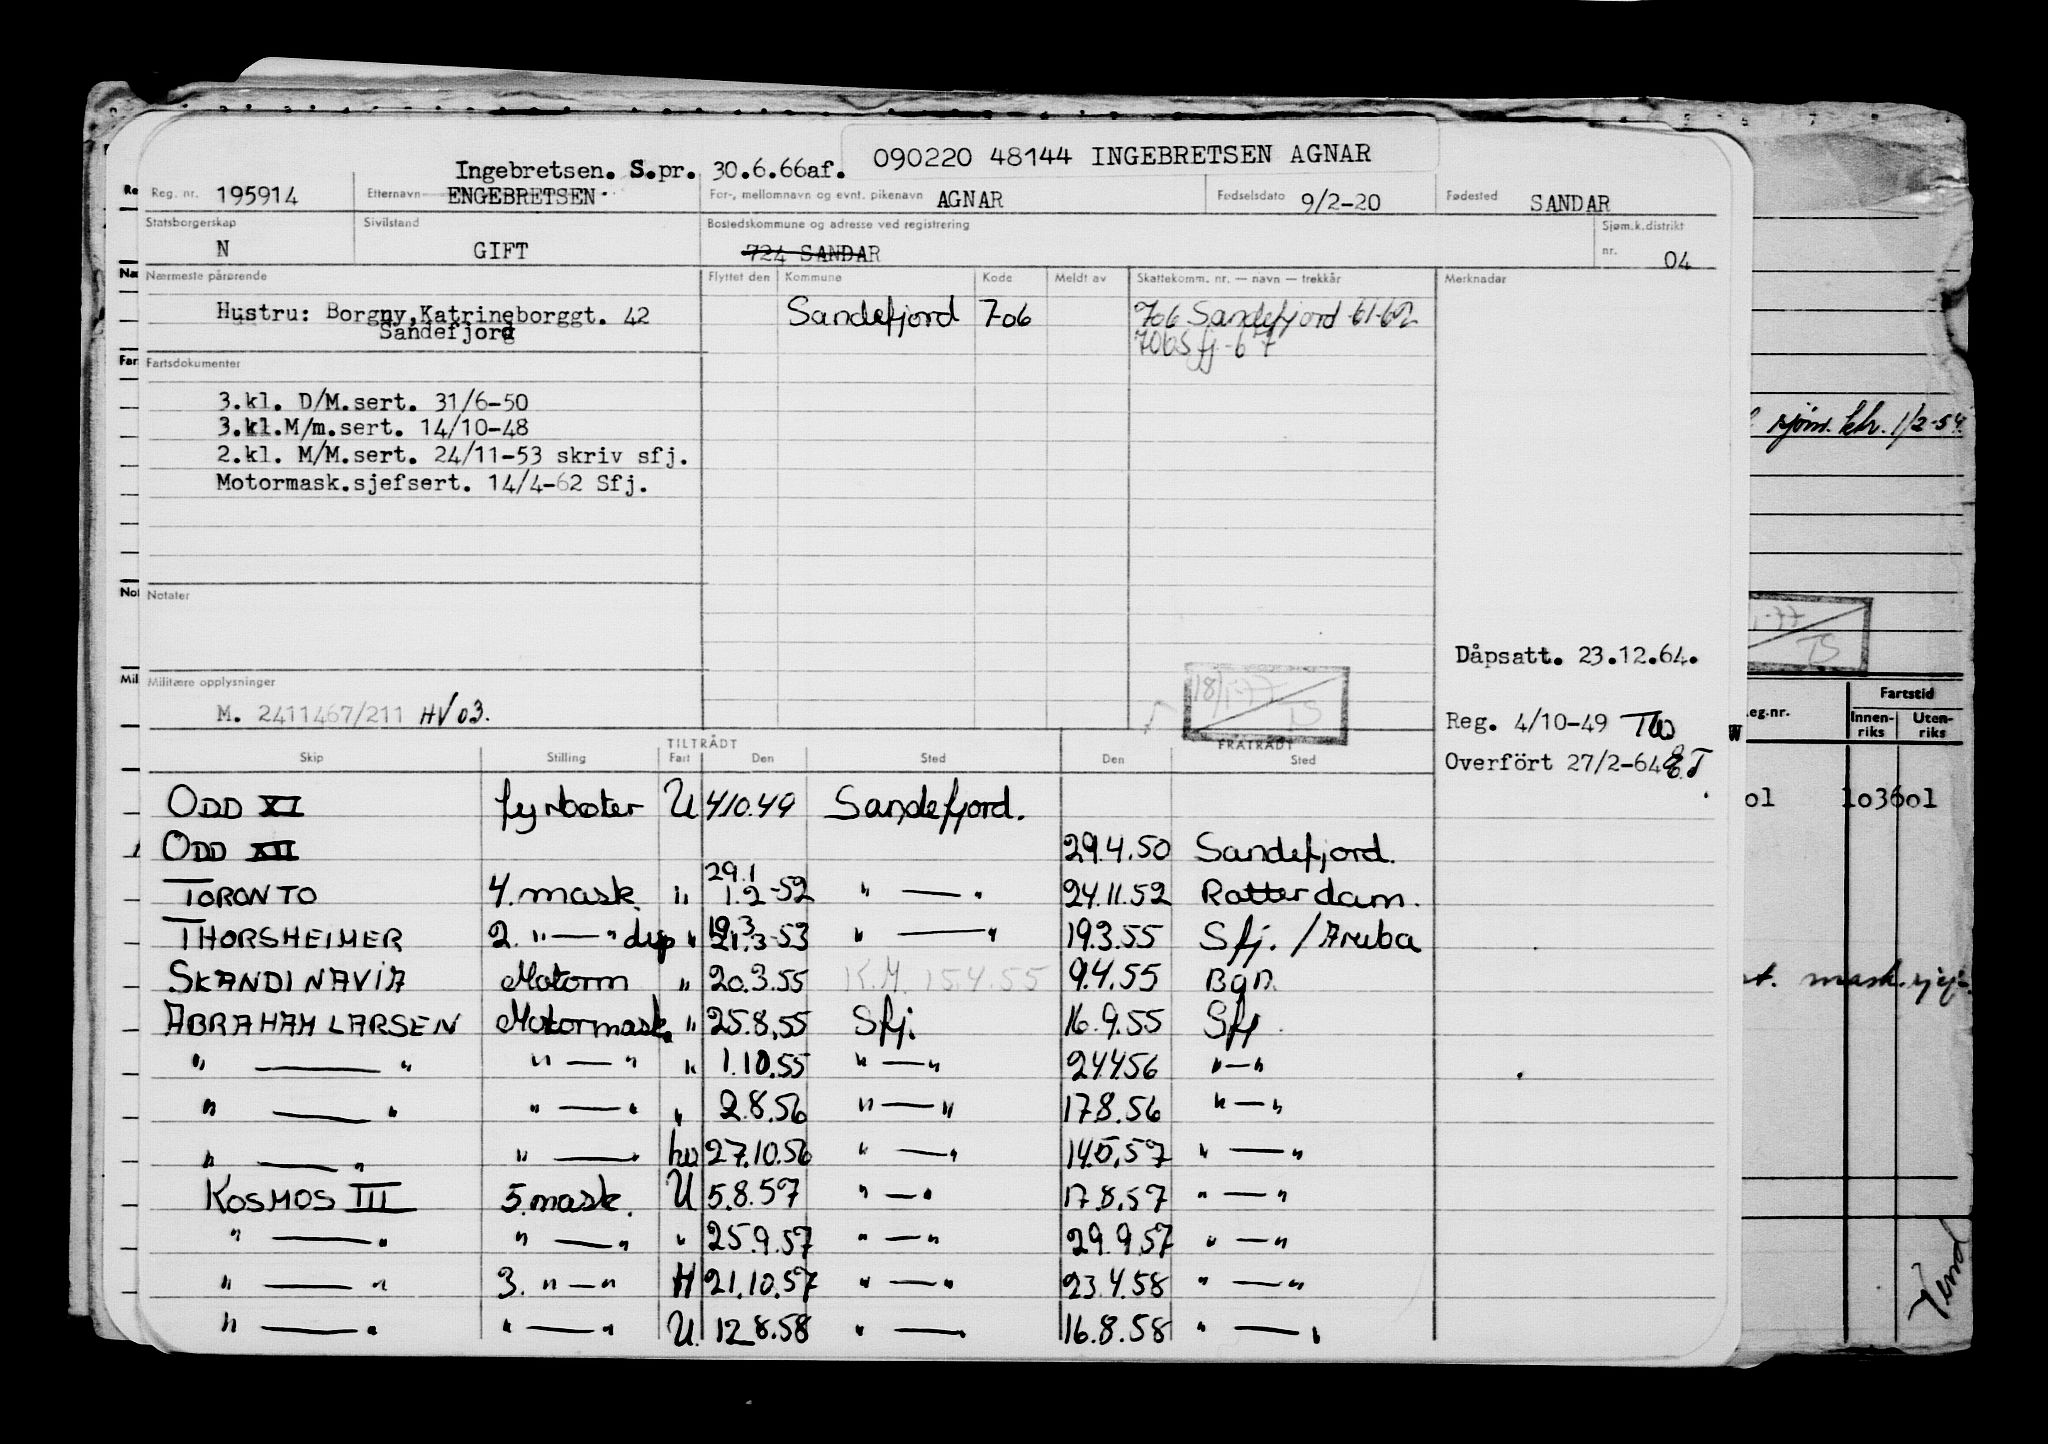 090220 48144 INGEBRETSEN AGNAR
Ingebretsen. S.pr. 30.6.66af.
Reg. nr. 195914 Etternavn ENGEBRETSEN For-, mellomnavn og evnt. pikenavn AGNAR Fødselsdato 9/2-20 Fødested SANDAR
Statsborgerskap Sivilstand Bostedskommune og adresse ved registrering Sjøm.k.distrikt
N GIFT 724 SANDAR nr. 04
Nærmeste pårørende Flyttet den Kommune Kode Meldt av Skattekomm. nr. — navn — trekkår Merknader
Hustru: Borgny, Katrineborggt. 42 Sandefjord 706 706 Sandefjord 61-62
Sandefjord 706 Sfj - 67
Fartsdokumenter
3.kl. D/M.sert. 31/6-50
3.kl.M/m.sert. 14/10-48
sjøm. ktr. 1/2-54
2.kl. M/M.sert. 24/11-53 skriv sfj.
Motormask.sjefsert. 14/4-62 Sfj.
Notater
Dåpsatt. 23.12.64.
Militære opplysninger
M. 2411467/211 HV 03.
18/1-77 TS
Reg. 4/10-49
Overfört 27/2-64 E.T
TILTRÅDT FRATRÅDT
Skip Stilling Fart Den Sted Den Sted
eg.nr. Fartstid
Innen-riks Uten-riks
ODD XI fyrbøter U 4.10.49 Sandefjord.
o1 1o36o1
ODD XII 29.4.50 Sandefjord.
29.1
TORONTO 4. mask. " 1.2-52 " — " 24.11.52 Rotterdam.
19.3
THORSHEIMER 2. " — " disp " 21.3-53 " — " 19.3.55 Sfj. / Aruba
SKANDINAVIA Motorm " 20.3.55 K.M. 15.4.55 9.4.55 Bgn.
mask.
ABRAHAM LARSEN Motormask. " 25.8.55 Sfj. 16.9.55 Sfj.
" — " " — " " 1.10.55 " — " 24.4.56 " — "
" — " " — " " 2.8.56 " — " 17.8.56 " — "
" — " " — " hv 27.10.56 " — " 14.5.57 " — "
KOSMOS III 5. mask. U 5.8.57 " — " 17.8.57 " — "
" — " " — " " 25.9.57 " — " 29.9.57 " — "
" — " 3. " — " H 21.10.57 " — " 23.4.58 " — "
" — " " — " U. 12.8.58 " — " 16.8.58 " — "